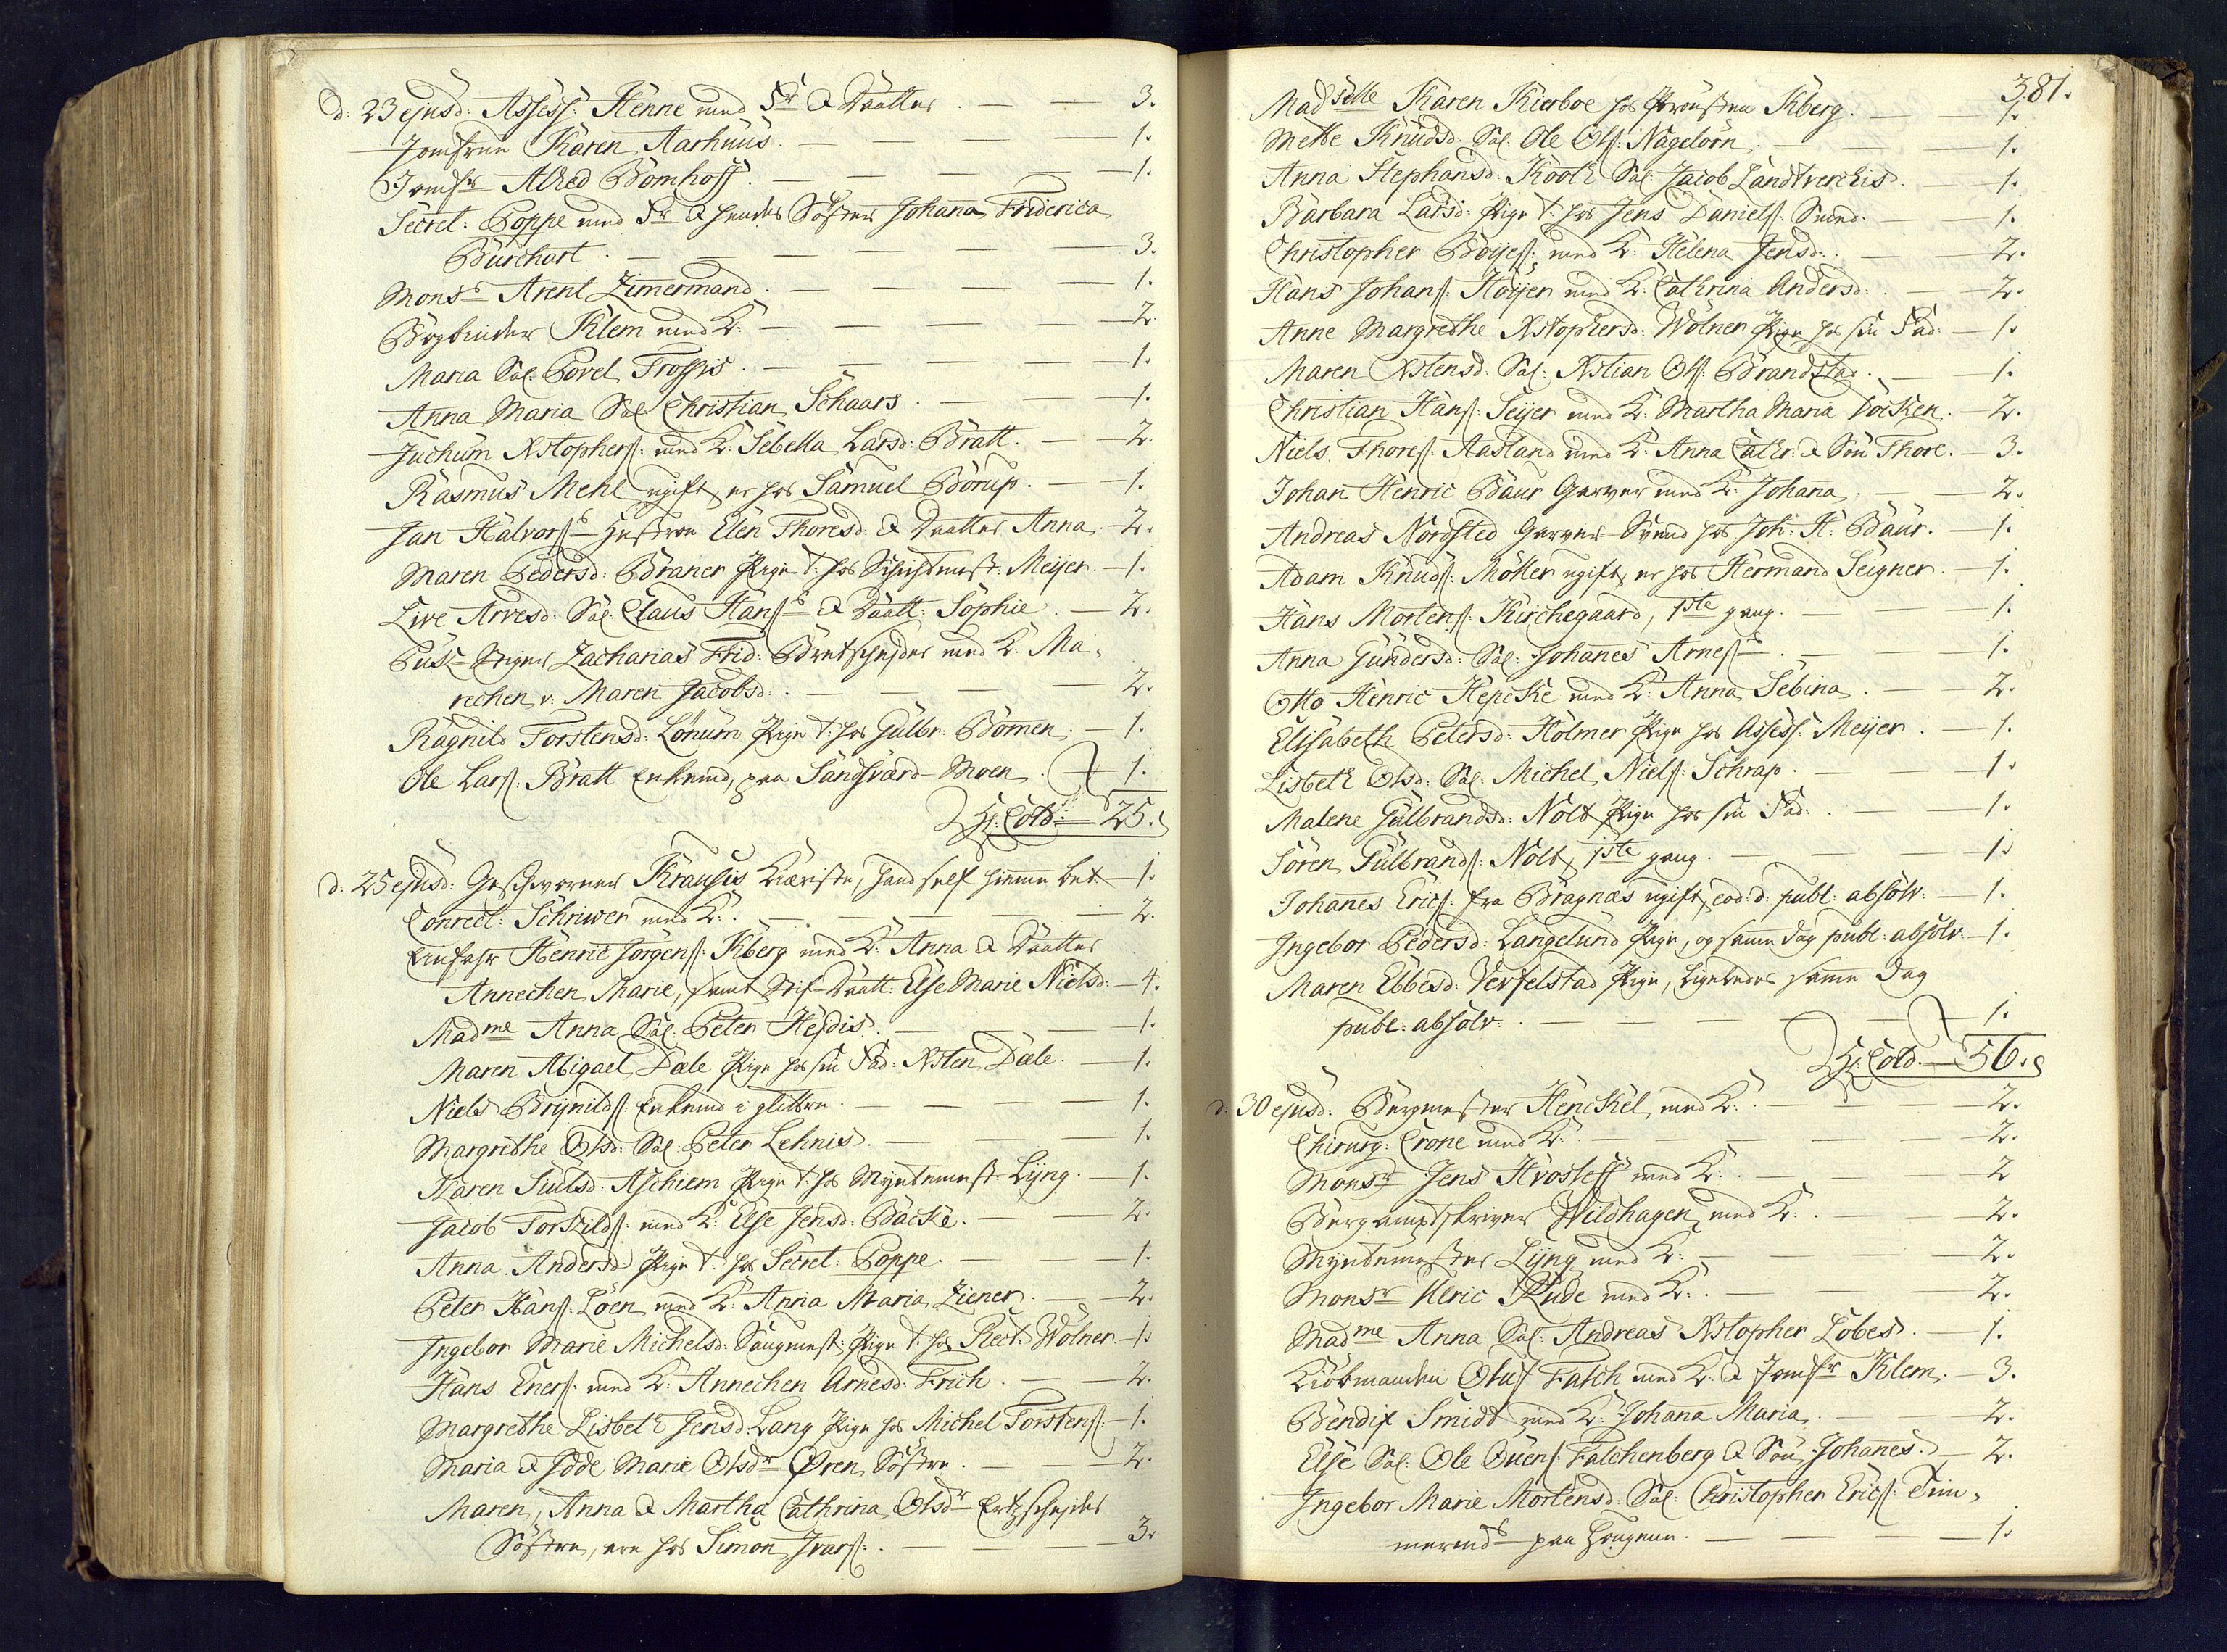 d: 23 ejusd: Assess: Henne med Fr & Daatter. — — 3.
Jomfrue Karen Aarhuus. — — — 1.
Jomfr Alhed Bomhoff. — — — 1.
Secret: Poppe med Fr & hendes Søster Johana Friderica
Burchart. — — — — 3.
Monsr Arent Zimermand. — — — 1.
Bøgbinder Klem med K: — — — 2.
Maria Sal: Povel — — 1.
Anna Maria Sal: Christian Schaars. — — 1.
Juchum Xstophers: med K: Sebella Larsd: Bratt. — 2.
Rasmus Mehl ugift, er hos Samuel Børup. — 1.
Jan Halvors: Hustroe Elen Thoresd: & Daatter Anna. — 2.
Maren Pedersd: Braner Pige t: hos Meijer. — 1.
Live Arvesd: Sal: Claus Hans: & Daatt: Sophie. — 2.
Zacharias Frid: Bretschejder med K: Ma-
rechen v: Maren Jacobsd:. — — — 2.
Ragnild Torstensd: Lønum Pige t: hos Gulbr: Bømen. — 1.
Ole Lars: Bratt Enkemd, paa Sandsværd-Moen. — 1.
Hr: Cold: — 25.
d: 25 ejusd: Geschworner Krausis Kiæreste, hand self hiemme ber: — 1.
Conrect: Schriwer med K:. — — — 2.
Einfahr Henric Jørgens: Kberg med K: Anna & Daatter
Annechen Marie, samt Stif-Daatt: Else Marie Nielsd: — 4.
Madme Anna Sal: Peter Hejdis. — — 1.
Maren Abigael Dæle Pige hos sin Fad: Xsten Dæle. — 1.
Niels Brynilds: Enkemd i glittre. — — 1.
Margrethe Olsd: Sal: Peter Lehnis. — — 1.
Karen Siulsd: Aschiem Pige t: hos Myntemest: Lyng. — 1.
Jacob Torkilds: med K: Else Jensd: Backe. — 2.
Anna Andersd: Pige t: hos Secret: Poppe. — 1.
Peter Hans: Loen med K: Anna Maria Ziener. — 2.
Ingebor Marie Michelsd: Saugmest: Pige t: hos Rect: Wolner. — 1.
Hans Eners: med K: Annechen Arnesd: Frich. — 2.
Margrethe Lisbeth Jensd: Lang Pige hos Michel Torstens: — 1.
Maria & Idde Marie Olsdr Øren, Søstre. — 2.
Maren, Anna & Martha Cathrina Olsdr Ertzschejder
Søstre, ere hos Simon Ivars:. — — 3.
381.
Madselle Karen Kierboe hos Prousten Kberg. — 1.
Mette Knudsd: Sal: Ole Ols: Nageløen. — — 1.
Anna Stephansd: Koch Sal: Jacob Landtverchis. — 1.
Barbara Larsd: Pige t: hos Jens Daniels: Smed. — 1.
Christopher Boijes: med K: Helena Jensd:. — 2.
Hans Johans: Høijer med K: Cathrina Andersd:. — 2.
Anne Margrethe Xstophersd: Wolner Pige hos sin Fad: — 1.
Maren Xstensd: Sal: Xstian Ols: Brandstad. — 1.
Christian Hans: Seijer med K: Martha Maria Focken. — 2.
Niels Thores: Aasland med K: Anna Cathr: & Søn Thore. — 3.
Johan Henric Baur Garver med K: Johana. — 2.
Andreas Nordsted Garver-Svend hos Joh: H: Baur. — 1.
Adam Knuds: Møller ugift, er hos Hermand Seigner. — 1.
Hans Mortens: Kirchegaard, 1ste gang. — — 1.
Anna Gundersd: Sal: Johanes Arnes:. — — 1.
Otto Henric Hepcke med K: Anna Sebina. — 2.
Elisabeth Petersd: Holmer Pige hos Assess: Meijer. — 1.
Lisbeth Olsd: Sal: Michel Niels: Schrap. — — 1.
Malene Gulbrandsd: Nolt Pige hos sin Fad:. — 1.
Søren Gulbrands: Nolt, 1ste gang. — — 1.
Johanes Erics: fra Bragnæs ugift, eod: d: publ: absolv: — 1.
Ingebor Pedersd: Langelund Pige, og samme dag publ: absolv: — 1.
Maren Ebbesd: Verfelstad Pige, ligeledes samme Dag
publ: absolv:. — — — — 1.
Hr: Cold. — 56.
d: 30 ejusd: Bergmester Henckel med K:. — — 2.
Chirurg: Crone med K:. — — — 2.
Monsr Jens Hrosleff med K:. — — 2
Bergamptskriver Wildhagen med K:. — 2.
Myntemester Lyng med K: — — — 2.
Monsr Ulric Rude med K:. — — 2.
Madme Anna Sal: Andreas Xstopher Lobes. — 1.
Kiøbmanden Oluf Falch med K: & Jomfr Klem. — 3.
Bendix Smidt med K: Johana Maria. — 2.
Else Sal: Ole Ouens: Falchenberg & Søn Johanes. — 2.
Ingebor Marie Mortensd: Sal: Christopher Erics: Tim-
mermd paa Haugene. — — — 1.